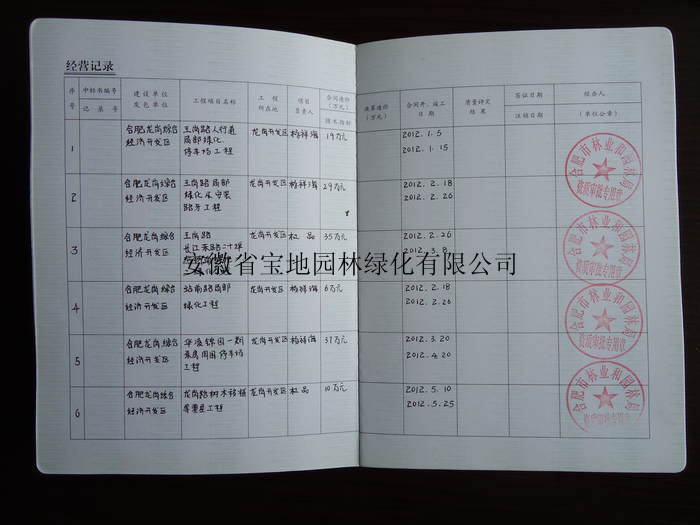 经营记录
序号 中标书编号 记录号 建设单位 发包单位 工程项目名称 工程所在地 项目负责人 合同造价(万元) 技术指标 决算造价(万元) 合同开、竣工日期 质量评定结果 签证日期 注销日期 经办人 (单位公章)
1 合肥龙岗综合 王岗路人行道 龙岗开发区 杨祥海 19万元 2012.1.5
经济开发区 局部绿化 2012.1.15
停车场工程
2 合肥龙岗综合 王岗路局部 龙岗开发区 杨祥海 29万元 2012.2.18
经济开发区 绿化及安装 2012.2.26
路牙工程
3 合肥龙岗综合 王岗路 龙岗开发区 杜品 35万元 2012.2.26
经济开发区 长江东路 2012.3.8
安徽省宝地园林绿化有限公司
4 合肥龙岗综合 站前路局部 龙岗开发区 杨祥海 6万元 2012.2.18
经济开发区 绿化工程 2012.2.26
5 合肥龙岗综合 华凌锦园一期 龙岗开发区 杨祥海 37万元 2012.3.20
经济开发区 周围停车场 2012.4.20
工程
6 合肥龙岗综合 龙岗路树木移植 龙岗开发区 杜品 10万元 2012.5.10
经济开发区 工程 2012.5.25
合肥市林业和园林局
资质审批专用章
合肥市林业和园林局
资质审批专用章
合肥市林业和园林局
资质审批专用章
合肥市林业和园林局
资质审批专用章